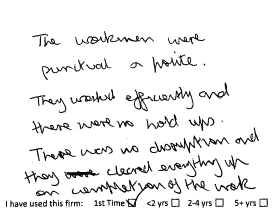 The workmen were
punctual a polite.
They worked efficiently and
there were no hold ups.
There was no disruption and
they cleared everything up
on completion of the work
I have used this firm: 1st Time ☑ <2 yrs ☐ 2-4 yrs ☐ 5+ yrs ☐